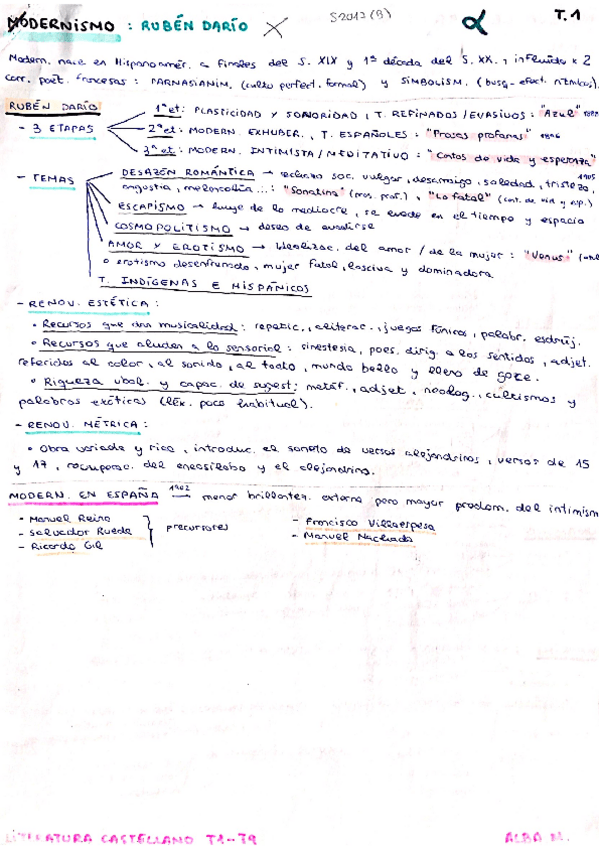 MODERNISMO : RUBÉN DARÍO S2013 (B) α T.1
Modern. nace en Hispanoamér. a finales del S. XIX y 1ª década del S. XX. , influido x 2
corr. poét. francesas : PARNASIANIM. (culto perfect. formal) y SIMBOLISM. (busq. efect. rítmicos).
RUBÉN DARÍO
- 3 ETAPAS
1ª et: PLASTICIDAD Y SONORIDAD , T. REFINADOS / EVASIVOS : "Azul" 1888
2ª et: MODERN. EXHUBER. , T. ESPAÑOLES : "Prosas profanas" 1896
3ª et: MODERN. INTIMISTA / MEDITATIVO : "Cantos de vida y esperanza" 1905
- TEMAS
DESAZÓN ROMÁNTICA → rechazo soc. vulgar, desarraigo, soledad, tristeza,
angustia, melancolía ... : "Sonatina" (pros. prof.) , "Lo fatal" (cant. de vid y esp.)
ESCAPISMO → huye de lo mediocre, se evade en el tiempo y espacio
COSMOPOLITISMO → deseo de evadirse
AMOR Y EROTISMO → Idealizac. del amor / de la mujer : "Venus"
o erotismo desenfrenado, mujer fatal, lasciva y dominadora.
T. INDÍGENAS E HISPÁNICOS
- RENOV. ESTÉTICA :
• Recursos que dan musicalidad : repetic., aliterac., juegos fónicos, palabr. esdrúj.
• Recursos que aluden a lo sensorial : sinestesia, poes. dirig. a los sentidos, adjet.
referidos al color, al sonido, al tacto, mundo bello y lleno de goce.
• Riqueza vbal. y capac. de sugest : metáf., adjet, neolog., cultismos y
palabras exóticas (léx. poco habitual).
- RENOV. MÉTRICA :
• Obra variada y rica, introduc. el soneto de versos alejandrinos, versos de 15
y 17, recuperac. del eneasílabo y el alejandrino.
MODERN. EN ESPAÑA 1902 → menor brillantez. externa pero mayor predom. del intimism
- Manuel Reina
- Salvador Rueda
- Ricardo Gil
precursores
- Francisco Villaespesa
- Manuel Machado
LITERATURA CASTELLANO T1-T9 ALBA M.